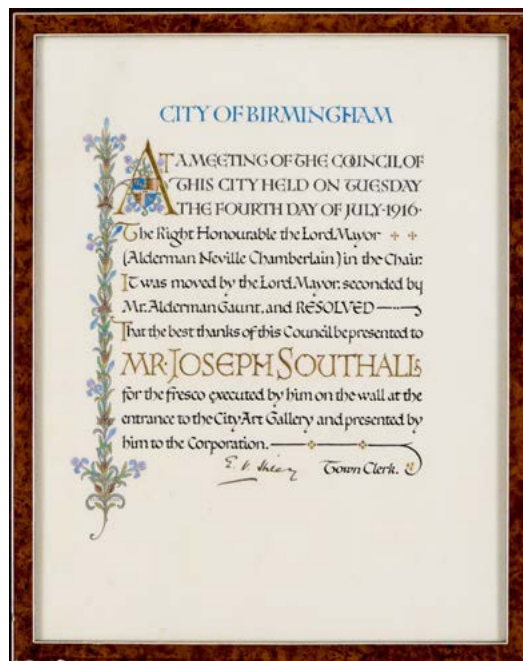 CITY OF BIRMINGHAM
AT A MEETING OF THE COUNCIL OF
THIS CITY HELD ON TUESDAY
THE FOURTH DAY OF JULY·1916·
The Right Honourable the Lord Mayor
(Alderman Neville Chamberlain) in the Chair:
It was moved by the Lord Mayor, seconded by
Mr. Alderman Gaunt, and RESOLVED
That the best thanks of this Council be presented to
MR·JOSEPH SOUTHALL
for the fresco executed by him on the wall at the
entrance to the City Art Gallery and presented by
him to the Corporation.
E. V. Town Clerk.